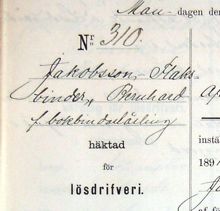 Man- dagen de
Nr 310.
Jakobsson, Isaks-
binder, Bernhard
f. bokbindarlärling
häktad
för
lösdrifveri.
instä
189